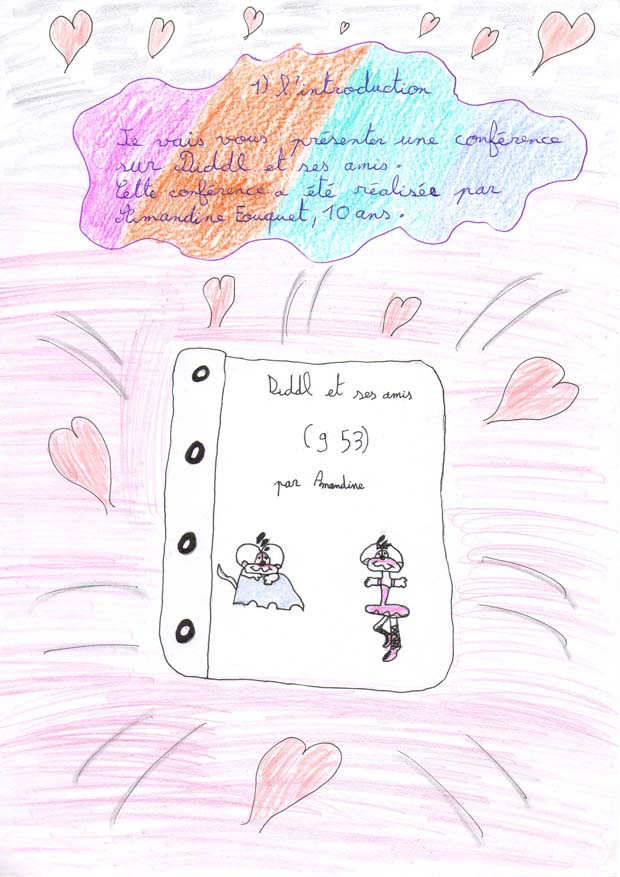 1) l'introduction
Je vais vous présenter une conférence
sur Diddl et ses amis.
Cette conférence a été réalisée par
Amandine Fouquet, 10 ans.
Diddl et ses amis
(g 53)
par Amandine